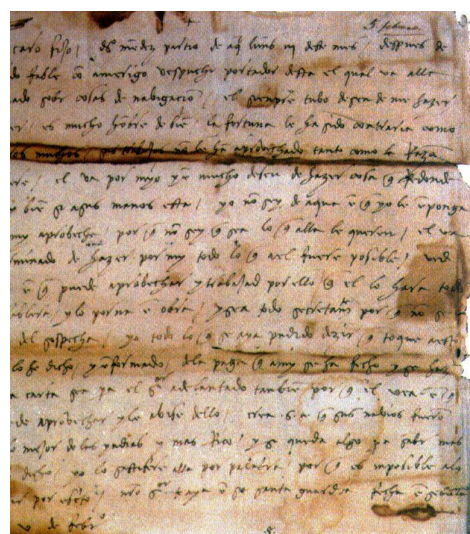 caro fijo / d° mendez partio de aq lunes iij deste mes / despues de
do fable co amerigo vespuchi portador desta el qual va alla
ado sobr cosas de nabigaçion / el siempre tubo deseo de me hazer
er / es mucho hobre de bie / la fortuna le ha sydo contraria como
os muchos / sus trabajos no le ha aprobechado tanto como la Razo
ere / el va por myo y e mucho deseo de hazer cosa q Redonde
a bie si a sus manos esta / yo no sey de aqua e q yo le eponga
my aprobeche / por q no sey q sea lo q alla le quieren / el va
minado de hazer por my todo lo q a el fuere posible / ved
e q puede aprobechar y trabajad por ello q el lo hara todo
ablara / y lo porna e obra / y sea todo secretame por q no se
del sospecha / yo todo lo q se aya podido dezir q toque a esto
lo he dicho / y enformado / de la paga q a my se ha fecho y se haz
a carta sea pa el s adelantado tanbie por q el vea e q
de aprobechar y le abise dello / crea s.a. q sus nabios fuero
o mejor de las yndias y mas Rico / y si queda algo pa saber mas
dicho / yo lo satisfare alla por palabra / por q es inposible a lo
ir por escrito / nro s te aya e su santa guardia fecha e sebilla
v de febr°